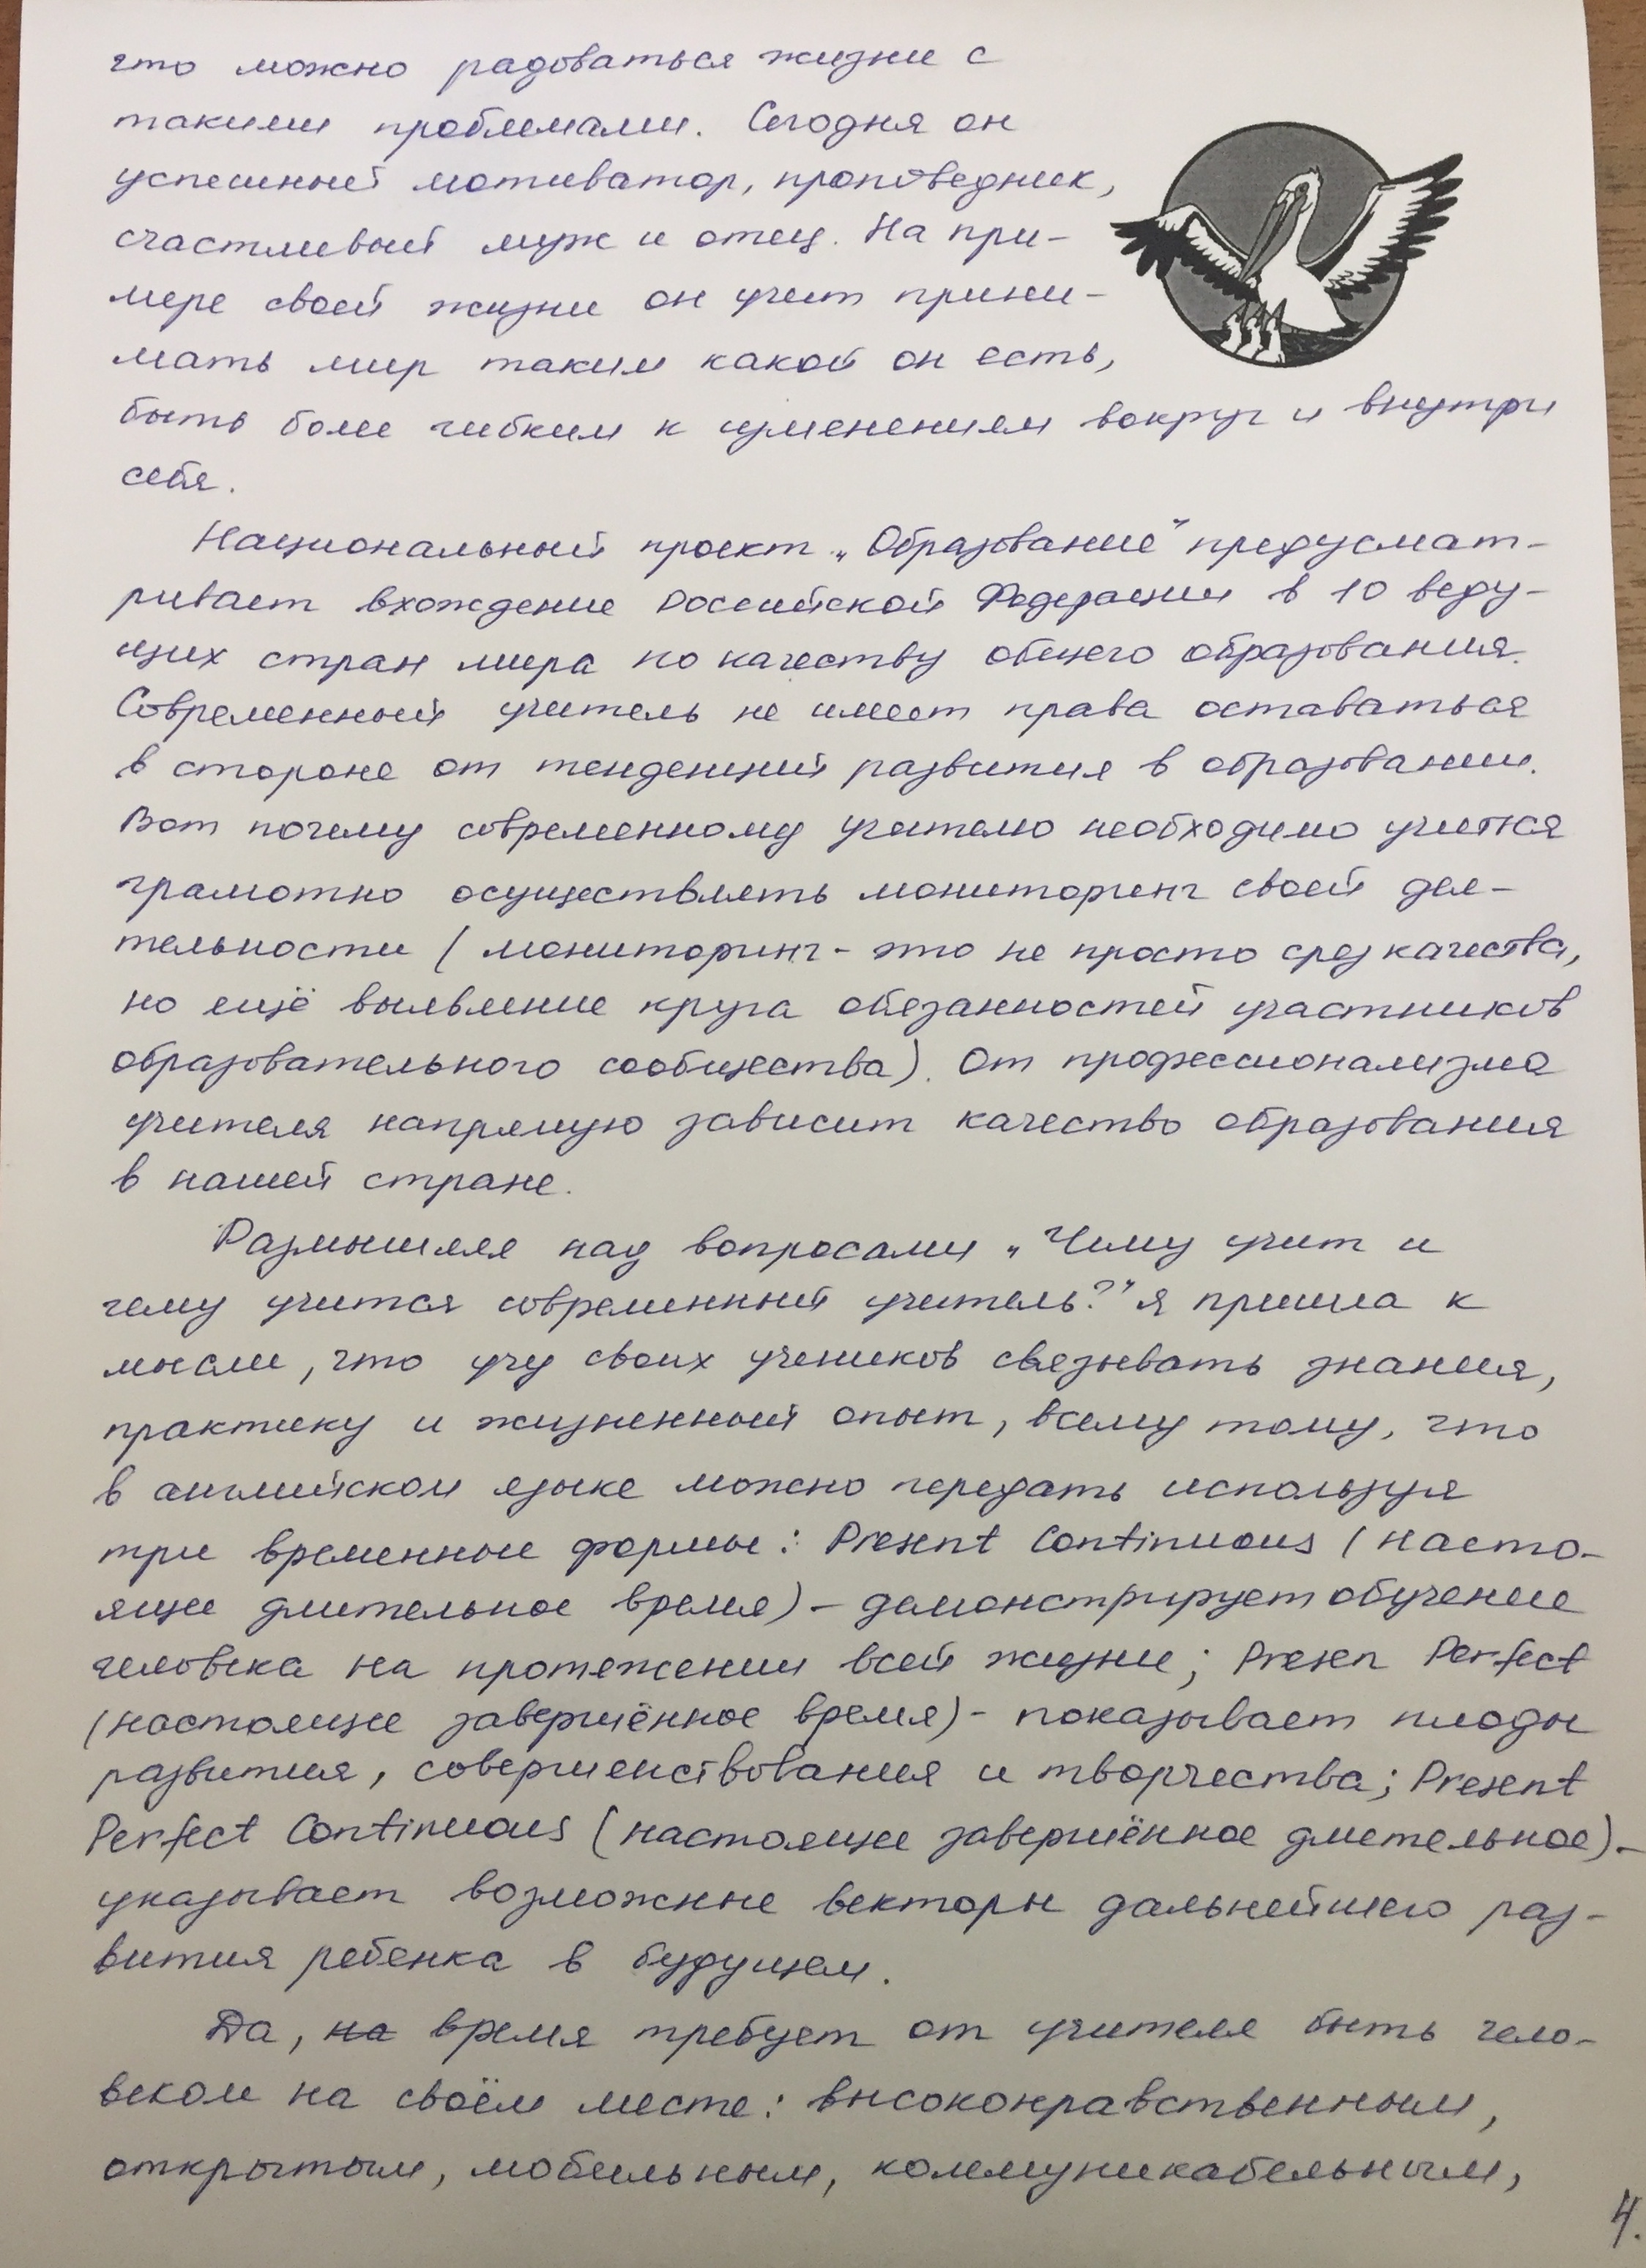 что можно радоваться жизни с
такими проблемами. Сегодня он
успешный мотиватор, проповедник,
счастливый муж и отец. На при-
мере своей жизни он учит прини-
мать мир таким какой он есть,
быть более гибким к изменениям вокруг и внутри
себя.
Национальный проект „Образование" предусмат-
ривает вхождение Российской Федерации в 10 веду-
щих стран мира по качеству общего образования.
Современный учитель не имеет права оставаться
в стороне от тенденций развития в образовании.
Вот почему современному учителю необходимо учиться
грамотно осуществлять мониторинг своей дея-
тельности (мониторинг - это не просто срез качества,
но ещё выявление круга обязанностей участников
образовательного сообщества). От профессионализма
учителя напрямую зависит качество образования
в нашей стране.
Размышляя над вопросами „Чему учит и
чему учится современный учитель?" я пришла к
мысли, что учу своих учеников связывать знания,
практику и жизненный опыт, всему тому, что
в английском языке можно передать используя
три временные формы: Present Continuous (насто-
ящее длительное время) - демонстрирует обучение
человека на протяжении всей жизни; Presen Perfect
(настоящее завершённое время) - показывает плоды
развития, совершенствования и творчества; Present
Perfect Continuous (настоящее завершённое длительное) -
указывает возможные векторы дальнейшего раз-
вития ребенка в будущем.
Да, на время требует от учителя быть чело-
веком на своём месте: высоконравственным,
открытым, мобильным, коммуникабельным,
4.